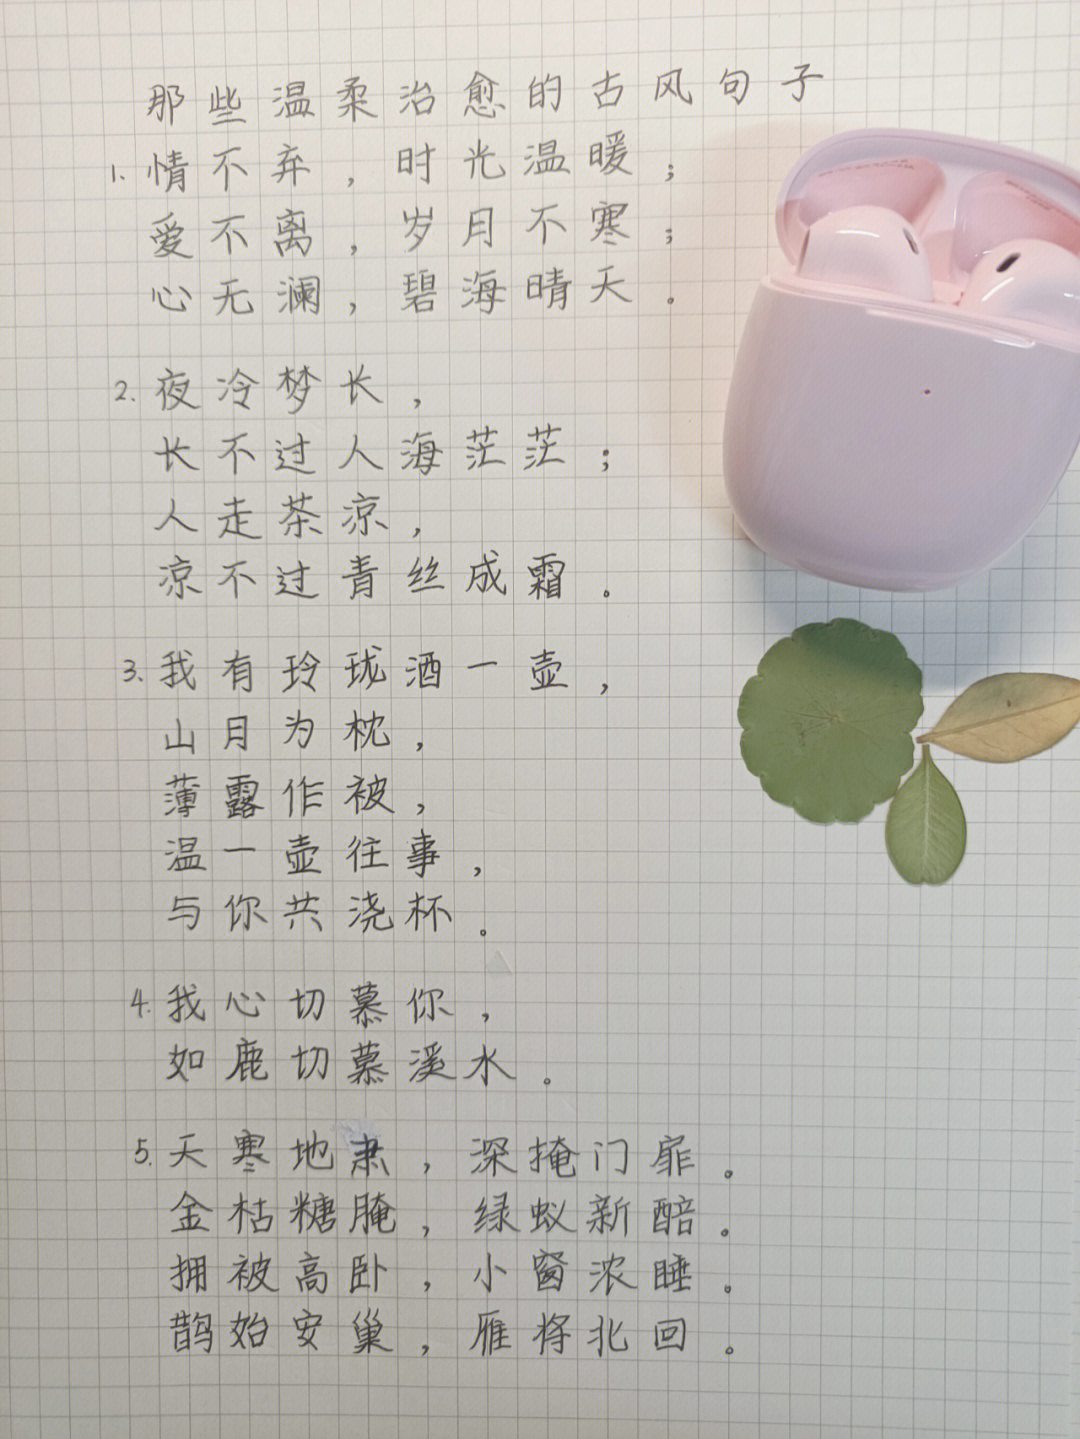 那些温柔治愈的古风句子
1. 情不弃，时光温暖；
爱不离，岁月不寒；
心无澜，碧海晴天。
2. 夜冷梦长，
长不过人海茫茫；
人走茶凉，
凉不过青丝成霜。
3、我有玲珑酒一壶，
山月为枕，
薄露作被，
温一壶往事，
与你共浇杯。
4. 我心切慕你，
如鹿切慕溪水。
5. 天寒地肃，深掩门扉。
金枯糖腌，绿蚁新醅。
拥被高卧，小窗浓睡。
鹊始安巢，雁将北回。